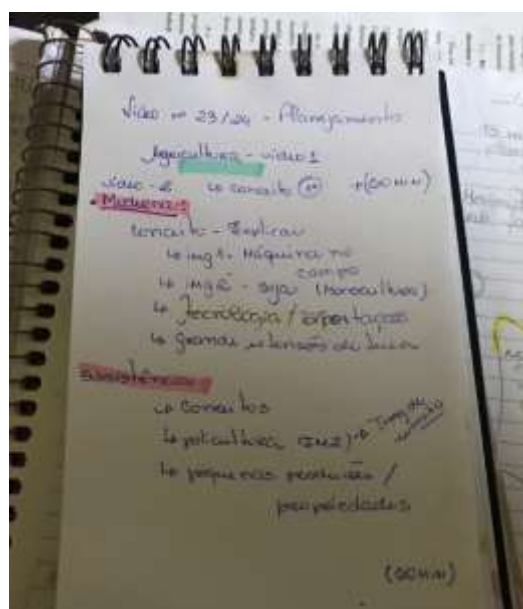 Vídeo nº 23/24 - Planejamento
Agricultura - vídeo 1
vídeo - 2 ↳ conceito
Moderna:
Conceito - Explicar
↳ img 1. Máquina no
campo
↳ img 2 - soja (Monocultura)
↳ Tecnologia / exportação
↳ grande extensão de terra
Subsistência
↳ Conceitos
↳ policultura
↳ pequenas produções /
propriedades